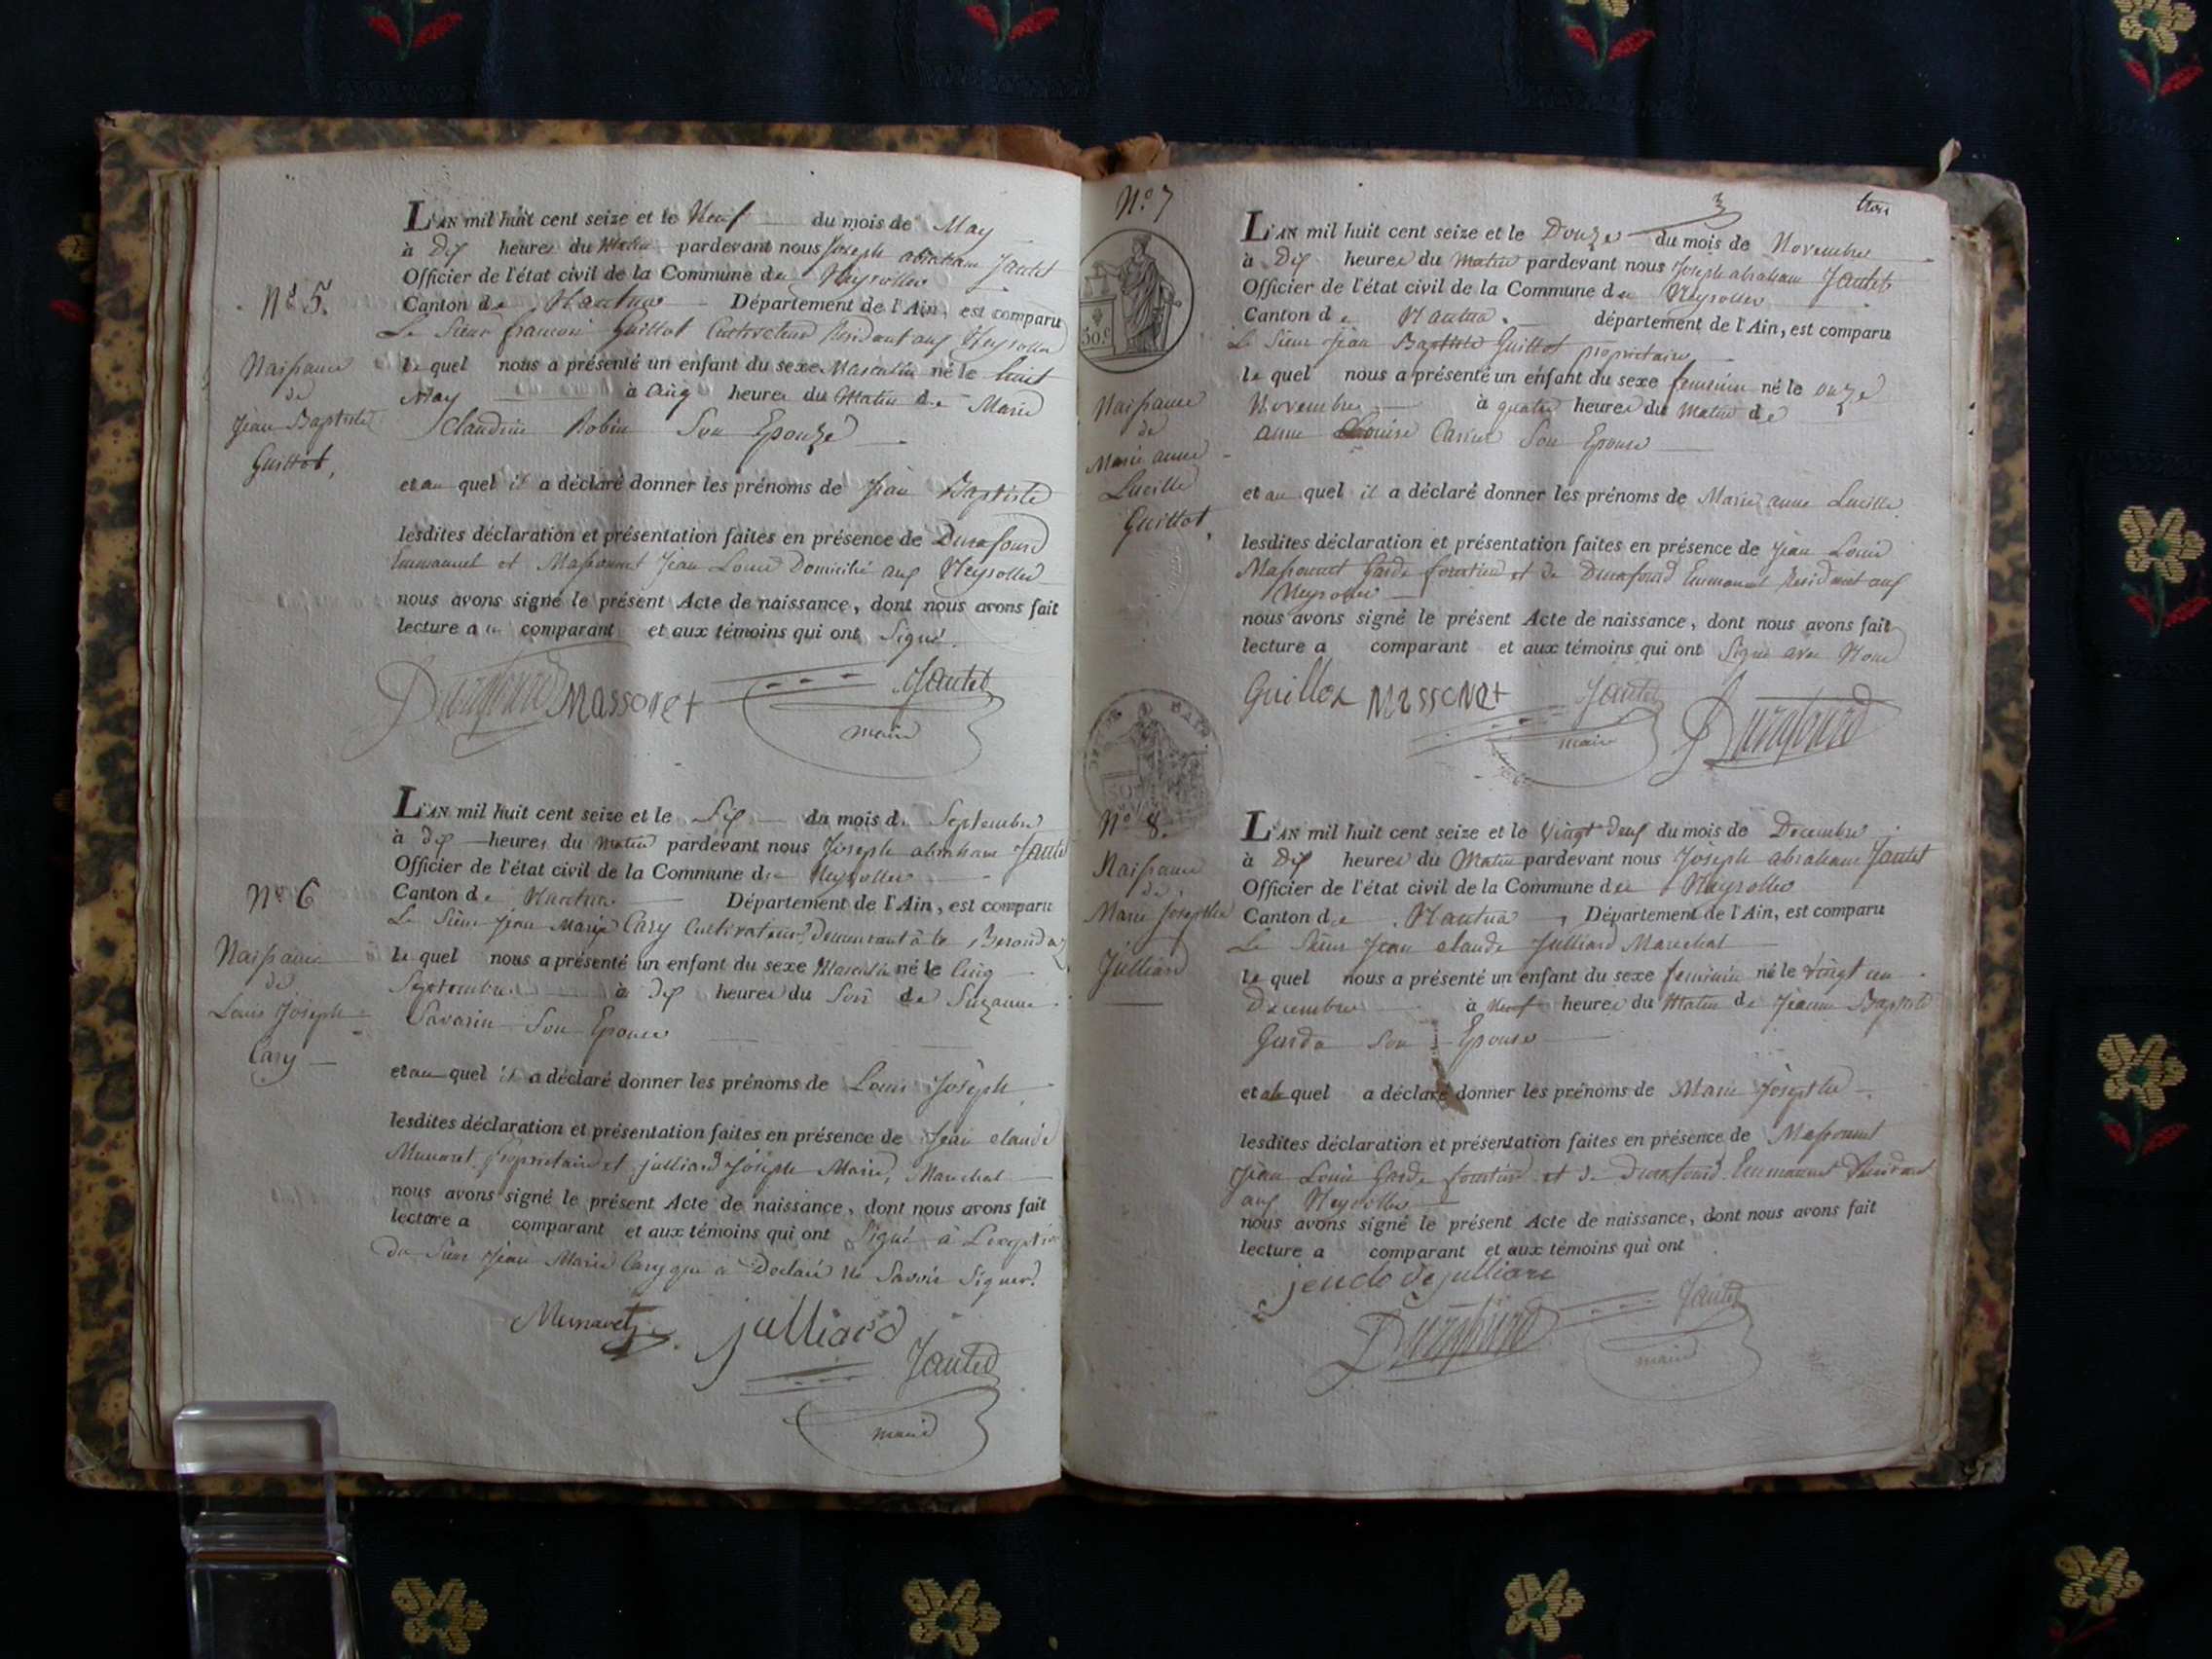 N.o 5.
Naissance
de
Jean Baptiste
Guillot,
L'AN mil huit cent seize et le Neuf du mois de May
à Dix heures du Matin pardevant nous Joseph abraham Jantet
Officier de l'état civil de la Commune des Neyrolles
Canton de Nantua Département de l'Ain, est comparu
Le Sieur francois Guillot Cultivateur Résidant aux Neyrolles
le quel nous a présenté un enfant du sexe Masculin né le huit
May à Cinq heures du Matin de Marie
Claudine Robin Son Epouze
et au quel il a déclaré donner les prénoms de Jean Baptiste
lesdites déclaration et présentation faites en présence de Durafourd
Emmanuel et Massonnet Jean Louis Domicilié aux Neyrolles
nous avons signé le présent Acte de naissance, dont nous avons fait
lecture au comparant et aux témoins qui ont Signé.
Durafourd Massonet Jantet
maire
N.o 6
Naissance
de
Louis Joseph
Cary
L'AN mil huit cent seize et le Six du mois de Septembre
à dix heures du matin pardevant nous Joseph abraham Jantet
Officier de l'état civil de la Commune des Neyrolles
Canton de Nantua Département de l'Ain, est comparu
Le Sieur Jean Marie Cary Cultivateur demeurant à la
le quel nous a présenté un enfant du sexe Masculin né le Cinq
Septembre à dix heures du Soir de Suzanne
Savarin Son Epouse
et au quel il a déclaré donner les prénoms de Louis Joseph
lesdites déclaration et présentation faites en présence de Jean claude
Munaret propriétaire et julliard Joseph Marie, Marechal
nous avons signé le présent Acte de naissance, dont nous avons fait
lecture a comparant et aux témoins qui ont Signé à L'exception
du Sieur Jean Marie Cary qui a Declaré ne Savoir Signer.
Munaret julliard
Jantet
maire
3 trois
N.o 7
50.c
Naissance
de
Marie anne
Lucille
Guillot,
L'AN mil huit cent seize et le Douze du mois de Novembre
à Dix heures du matin pardevant nous Joseph abraham Jantet
Officier de l'état civil de la Commune des Neyrolles
Canton de Nantua. département de l'Ain, est comparu
Le Sieur Jean Baptiste Guillot propriétaire
le quel nous a présenté un enfant du sexe feminin né le onze
Novembre à quatre heures du matin de
anne Louise Carrier Son Epouse
et au quel il a déclaré donner les prénoms de Marie anne Lucille
lesdites déclaration et présentation faites en présence de Jean Louis
Massonnet Garde forestier et de Durafourd Emmanuel Residant aux
Neyrolles
nous avons signé le présent Acte de naissance, dont nous avons fait
lecture a comparant et aux témoins qui ont Signé avec Nous
Guillot Massonet Jantet Durafourd
maire
N.o 8.
Naissance
de
Marie Josephte
Julliard
L'AN mil huit cent seize et le vingt deux du mois de Decembre
à Dix heures du Matin pardevant nous Joseph abraham Jantet
Officier de l'état civil de la Commune des Neyrolles
Canton de Nantua, Département de l'Ain, est comparu
Le Sieur Jean claude Julliard Marechal
le quel nous a présenté un enfant du sexe feminin né le vingt un
Decembre à Neuf heures du Matin de Jeanne Baptiste
Son Epouse
et quel a déclaré donner les prénoms de Marie Josephte
lesdites déclaration et présentation faites en présence de Massonnet
Jean Louis Garde forestier et de Durafourd Emmanuel Residant
aux Neyrolles
nous avons signé le présent Acte de naissance, dont nous avons fait
lecture a comparant et aux témoins qui ont
julliard
Durafourd Jantet
maire